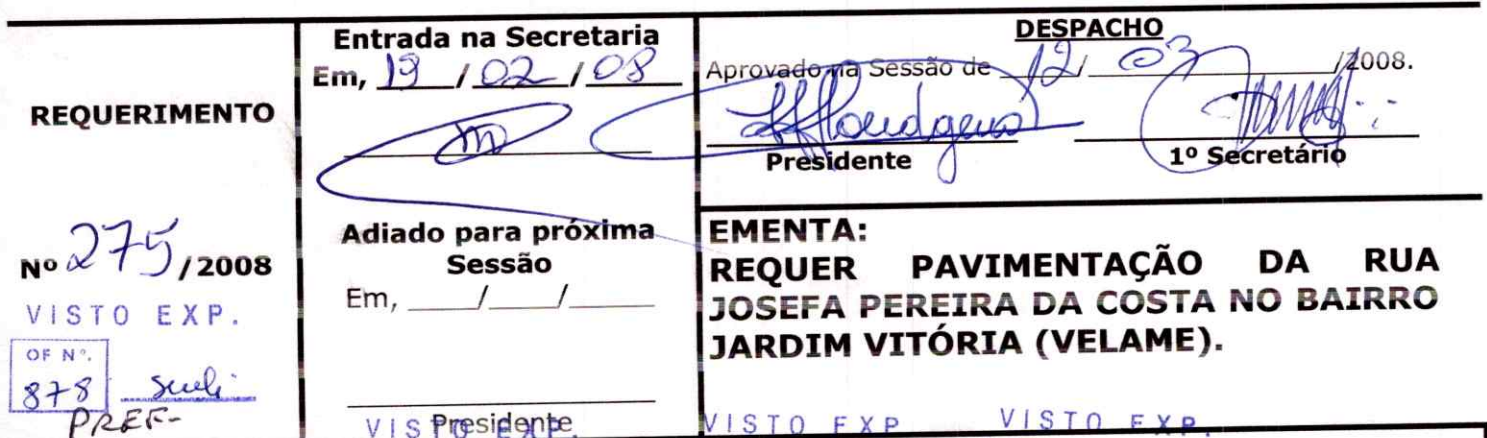 REQUERIMENTO
Nº 275/2008
VISTO EXP.
OF Nº.
878 Sueli
PREF-
Entrada na Secretaria
Em, 19 / 02 / 08
Adiado para próxima
Sessão
Em, ____/____/____
Presidente
VISTO EXP.
DESPACHO
Aprovado na Sessão de 12/ 03 /2008.
Presidente
1º Secretário
EMENTA:
REQUER PAVIMENTAÇÃO DA RUA
JOSEFA PEREIRA DA COSTA NO BAIRRO
JARDIM VITÓRIA (VELAME).
VISTO EXP VISTO EXP.